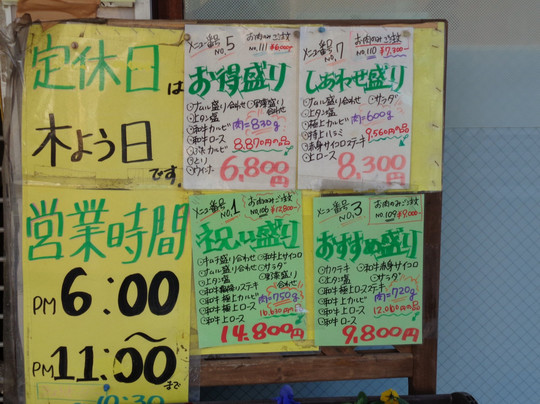 定休日は
木よう日
です。
営業時間
PM 6:00
〜
PM 11:00まで
10:30
メニュー番号 No,5
お肉のみご注文
No,111
お得盛り
○ナムル盛り合わせ
○野菜盛り合わせ
○上タン塩
○和牛カルビ
○和牛ロース
肉=830g
○とり
○ウインナー
8,870円の品
6,800円
メニュー番号 No,7
お肉のみご注文
No,110 ¥7,300-
しあわせ盛り
○ナムル盛り合わせ
○サラダ
○上タン塩
○極上カルビ
肉=600g
○特上ハラミ
○赤身サイコロステーキ
○上ロース
9,560円の品
8,300円
メニュー番号 No,1
お肉のみご注文
No,106 ¥12,800-
お祝い盛り
○キムチ盛り合わせ
○和牛上サイコロ
○ナムル盛り合わせ
○サラダ
○上タン塩
○野菜盛り合わせ
○和牛極上カルビ
○和牛極上ロース
○和牛上カルビ
○和牛上ロース
肉=750g
14,800円
メニュー番号 No,3
お肉のみご注文
No,109 ¥9,000-
おすすめ盛り
○カクテキ
○和牛赤身サイコロ
○ナムル盛り合わせ
○サラダ
○上タン塩
○和牛極上ロースステーキ
○和牛上カルビ
○和牛上ロース
○和牛ロース
肉=720g
12,060円の品
9,800円